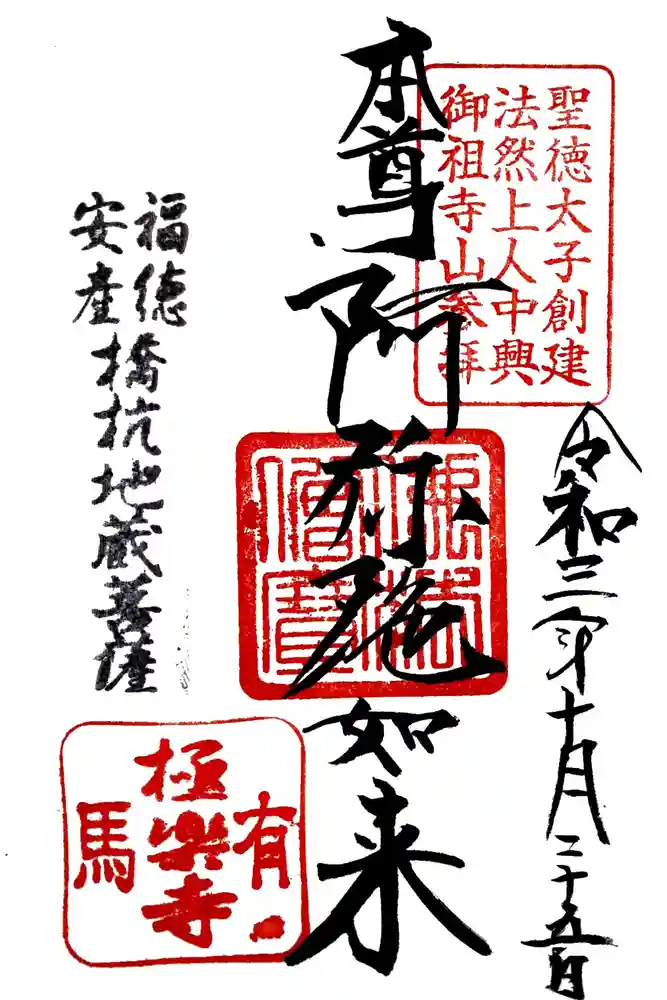 聖徳太子創建
法然上人中興
御祖寺山参拝
令和三年十月二十五日
本尊阿弥陀如来
福徳
安産
橋杭地蔵菩薩
有馬
極楽寺